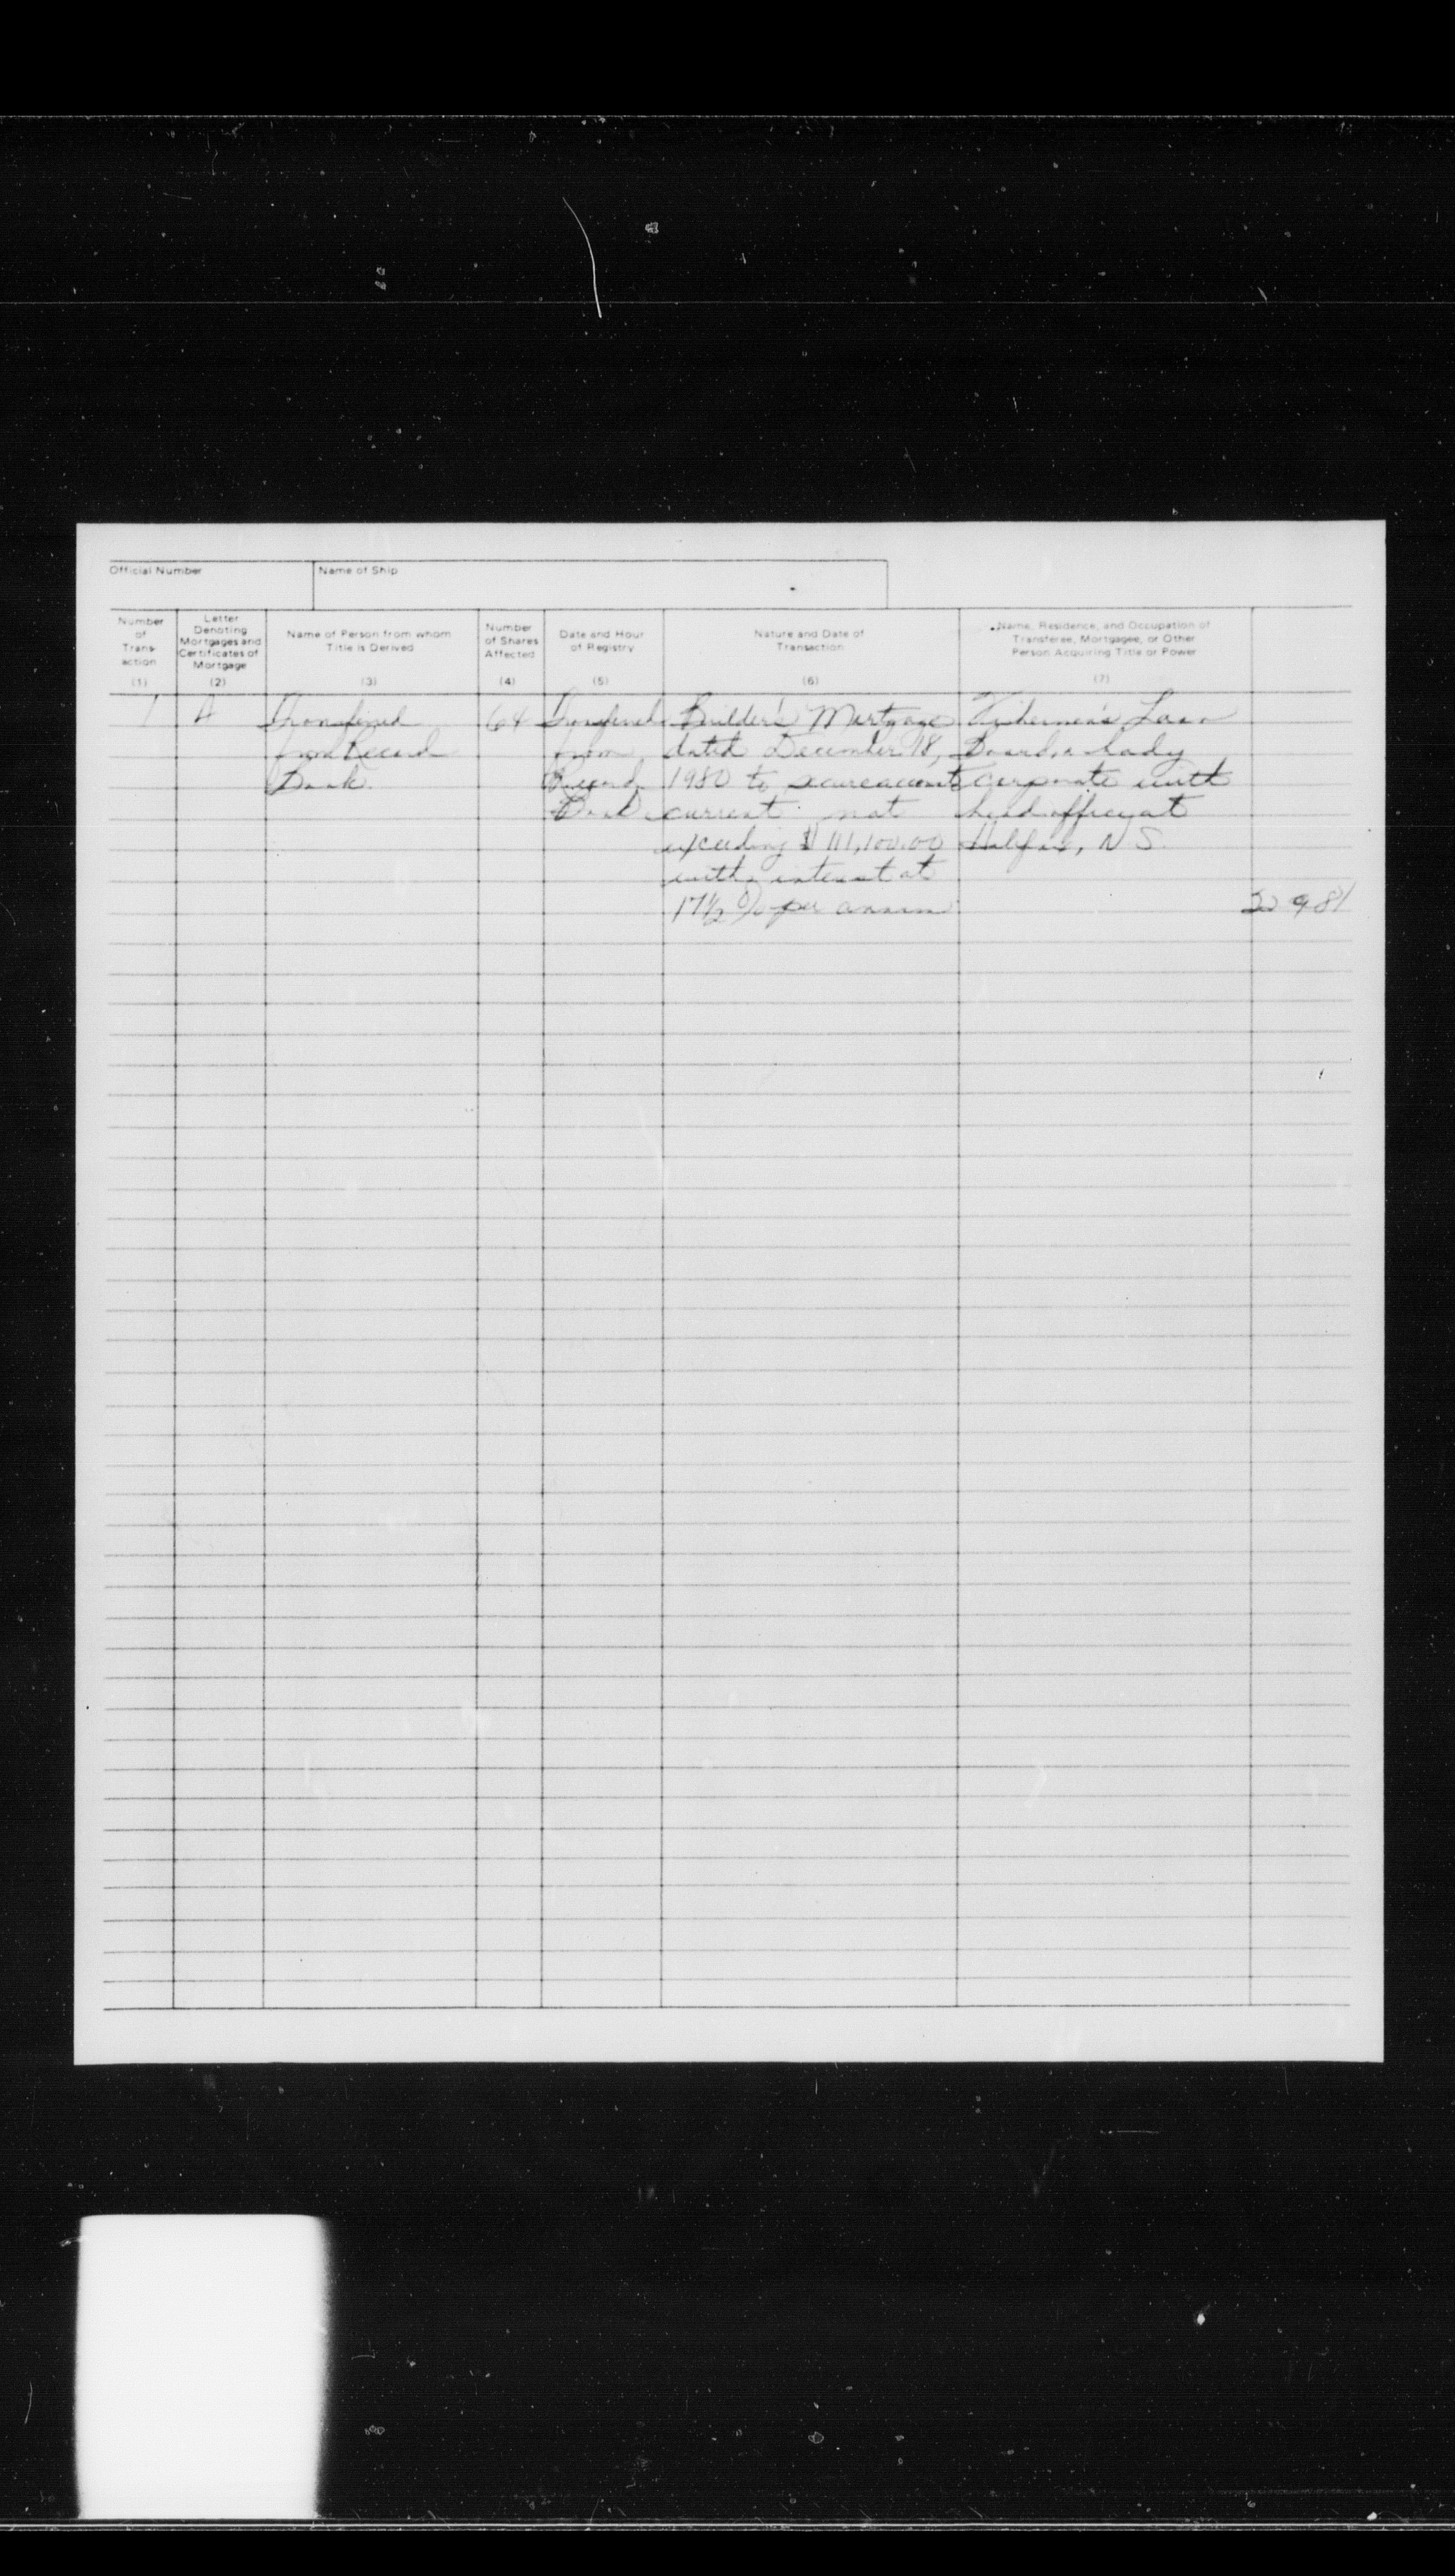 Official Number Name of Ship
Number of Trans- action (1)
Letter Denoting Mortgages and Certificates of Mortgage (2)
Name of Person from whom Title is Derived (3)
Number of Shares Affected (4)
Date and Hour of Registry (5)
Nature and Date of Transaction (6)
Name, Residence, and Occupation of Transferee, Mortgagee, or Other Person Acquiring Title or Power (7)
1 A Transferred 64 Transferred Builder's Mortgage Fishermen's Loan
from Record from dated December 18, Board, a body
Book. Record 1980 to secure account corporate with
Book current not head office at
exceeding $111,100.00 Halifax, N.S.
with interest at
17½ % per annum 9 81